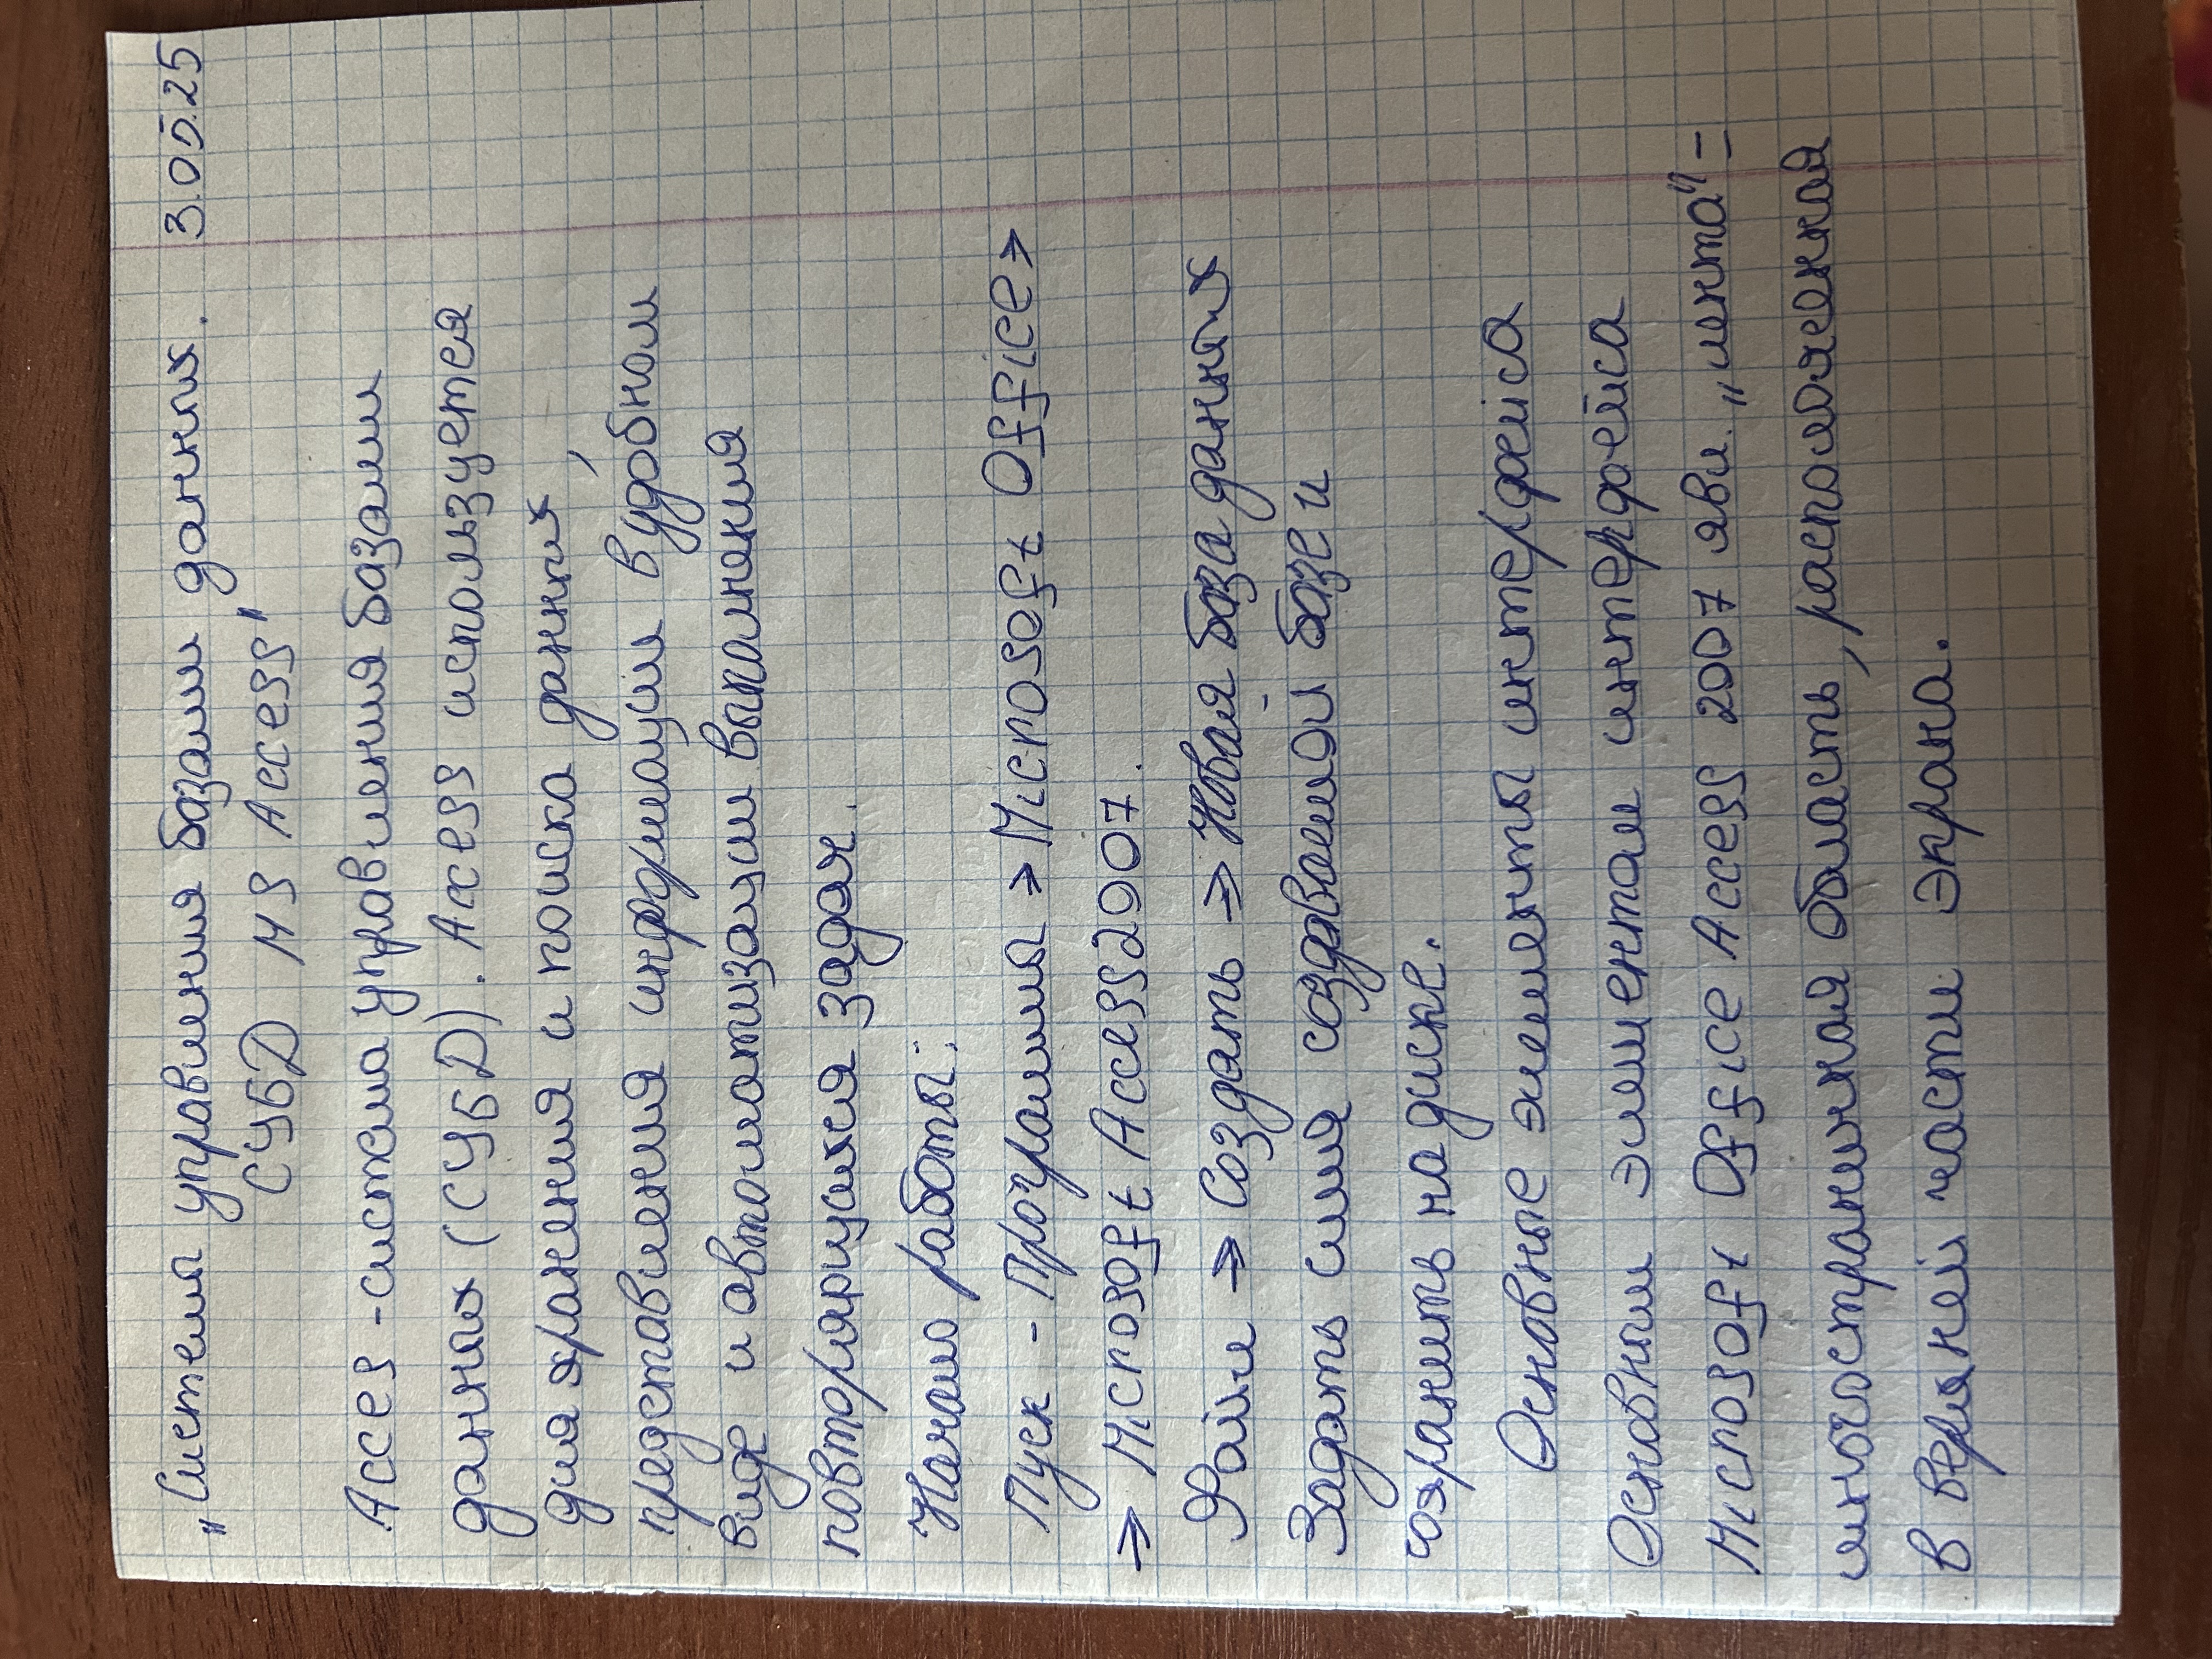 „Системы управления базами данных. 3.05.25
СУБД MS Access"
Acces - система управления базами
данных (СУБД). Access используется
для хранения и поиска данных,
представления информации в удобном
виде и автоматизации выполнения
повторяющихся задач.
Начало работы:
Пуск - Программы → Microsoft Office >
⇒ Microsoft Access2007.
Файл → Создать ⇒ Новая база данных
Задать имя создаваемой базе и
сохранить на диске.
Основные элементы интерфейса
Основным элементом интерфейса
Microsoft Office Access 2007 явл. „лента" =
многостраничная область, расположенная
в верхней части экрана.